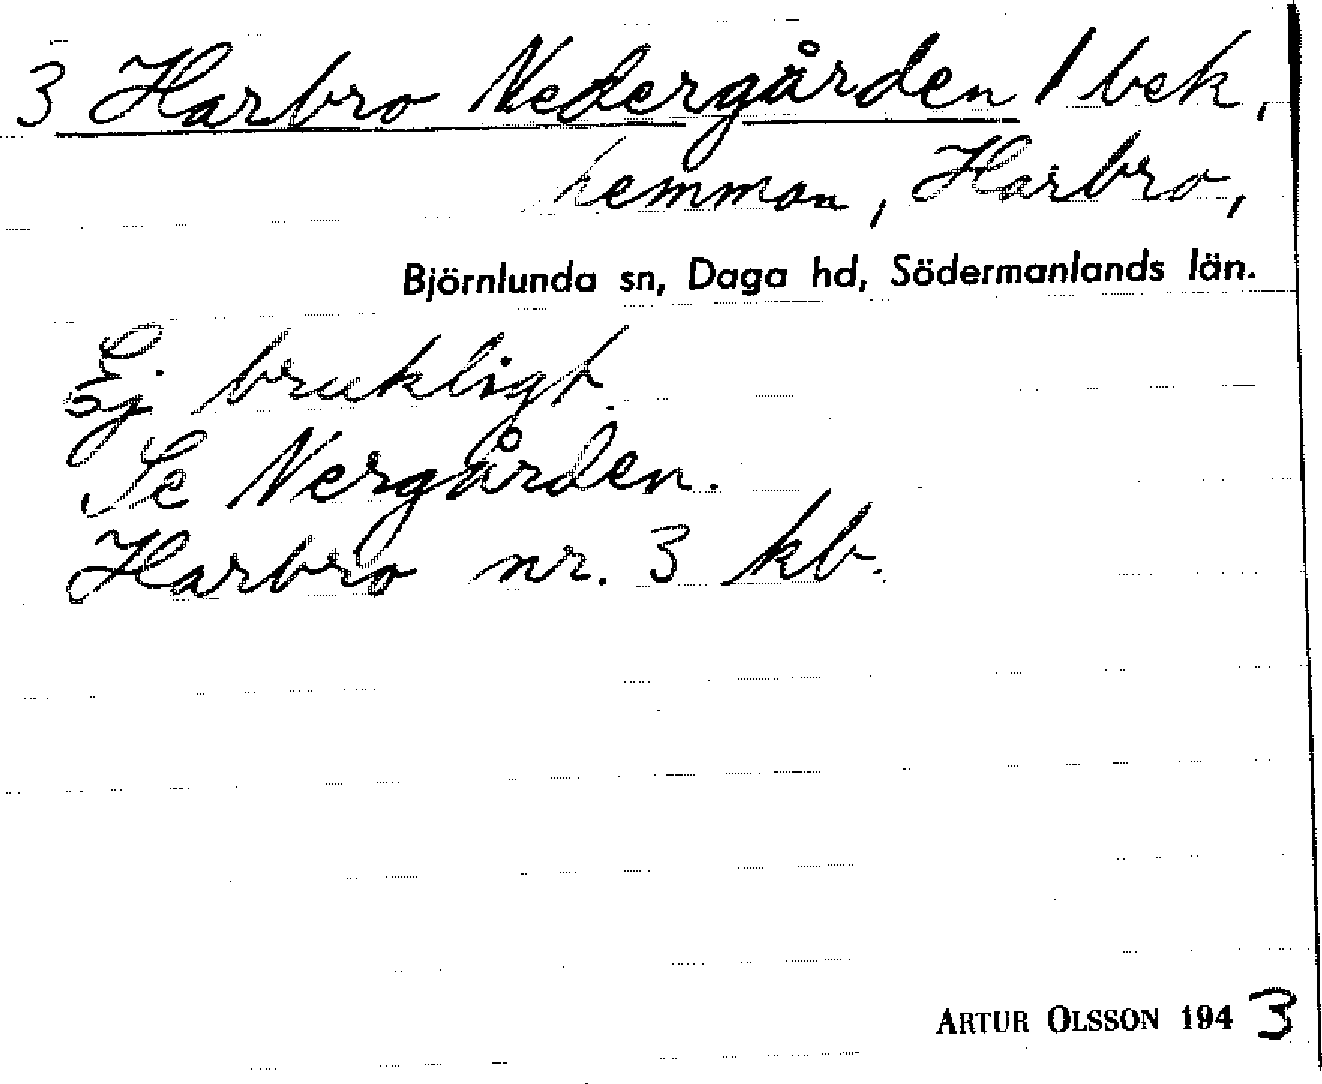 3 Harbro Nedergården 1 bek,
hemman, Harbro,
Björnlunda sn, Daga hd, Södermanlands län.
Ej brukligt.
Se Nergården.
Harbro nr. 3 kb.
ARTUR OLSSON 1943